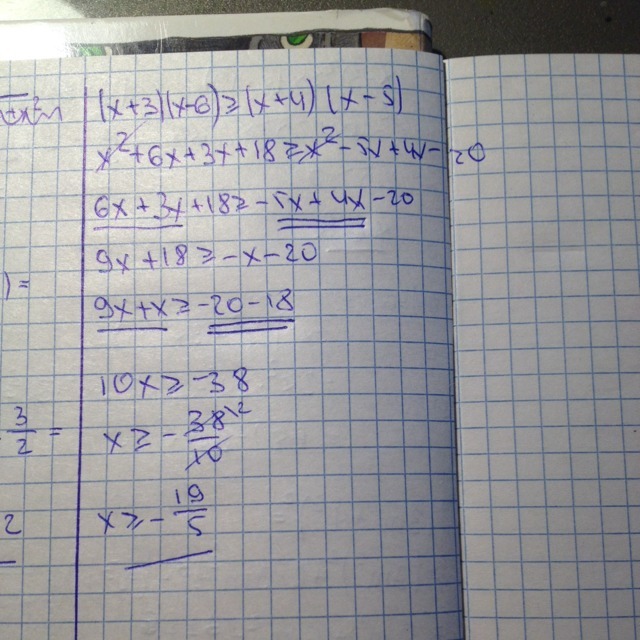 (x+3)(x-6)≥(x+4)(x-5)
x²+6x+3x+18≥x²-5x+4x-20
6x+3x+18≥-5x+4x-20
9x+18≥-x-20
)=
9x+x≥-20-18
10x≥-38
3/2 =
x≥-38/10
2
x≥-19/5